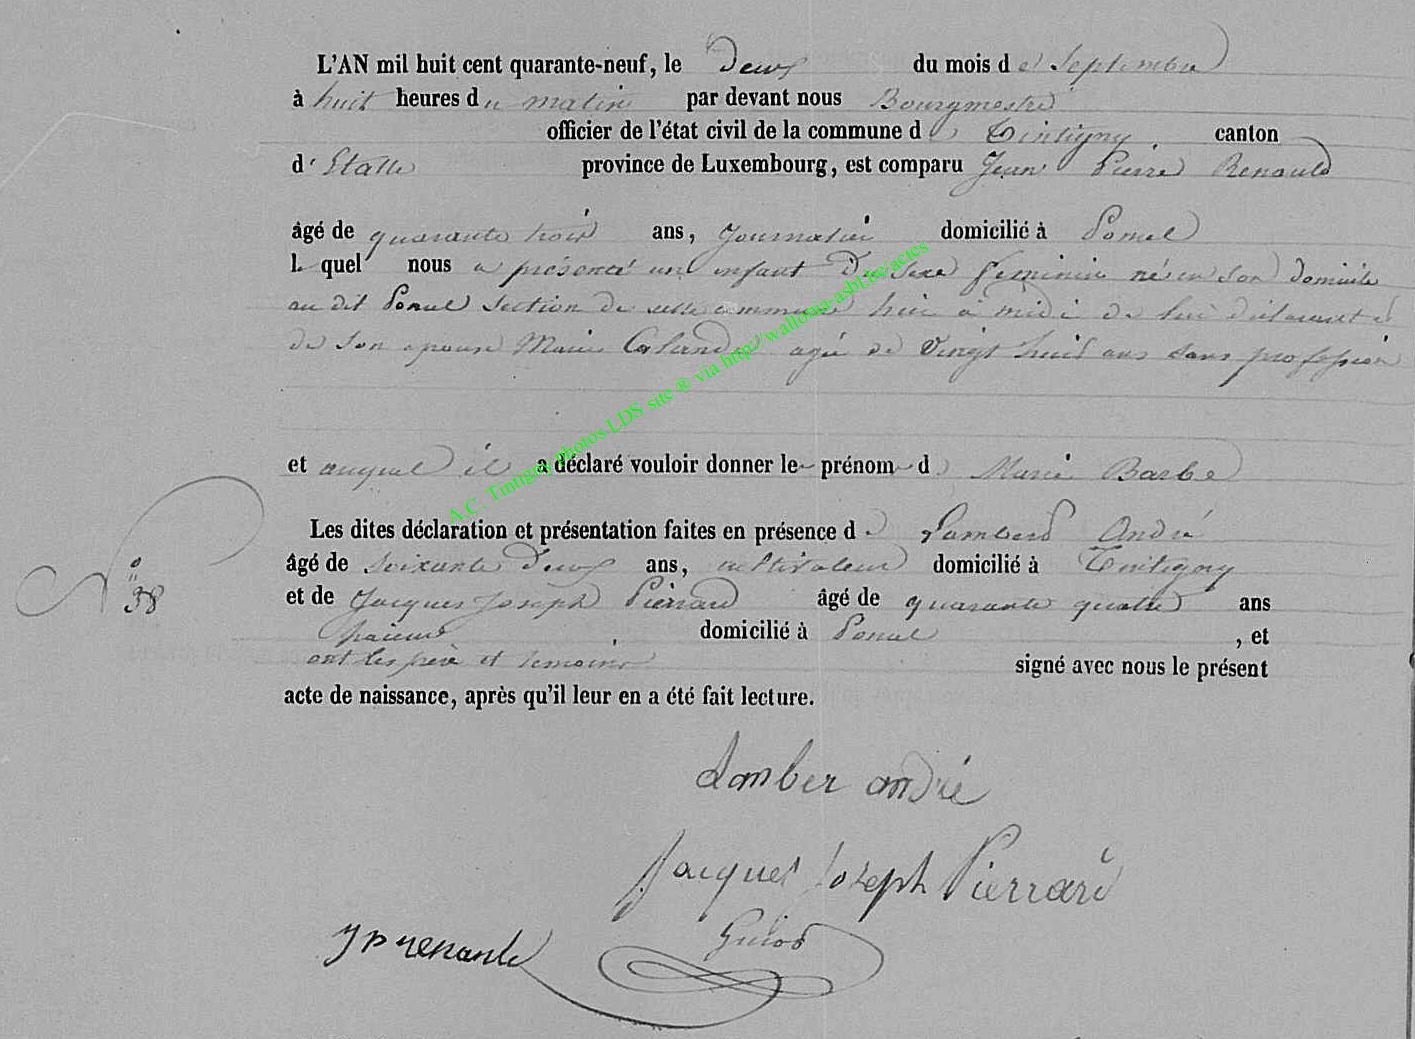 L'AN mil huit cent quarante-neuf, le Deux du mois de Septembre
à huit heures du matin par devant nous Bourgmestre
officier de l'état civil de la commune de Tintigny canton
d'Etalle province de Luxembourg, est comparu Jean Pierre Renauld
âgé de quarante trois ans, Journalier domicilié à Poncel
lequel nous a présenté un enfant De sexe feminin né en son Domicile
au dit Poncel section de cette commune hier à midi de lui déclarant et
de son epouse Marie agée de Vingt huit ans sans profession
et auquel il a déclaré vouloir donner le prénom de Marie Barbe
Les dites déclaration et présentation faites en présence de Lambert André
âgé de Soixante Deux ans, cultivateur domicilié à Tintigny
N° 38
et de Jacques Joseph Pierrard âgé de quarante quatre ans
domicilié à Poncel , et
ont les père et temoins signé avec nous le présent
acte de naissance, après qu'il leur en a été fait lecture.
Lamber andré
Jacques Joseph Pierrard
JP renauld
A.C. Tintigny Photos LDS site ® via http://walloma-asbl.be/actes